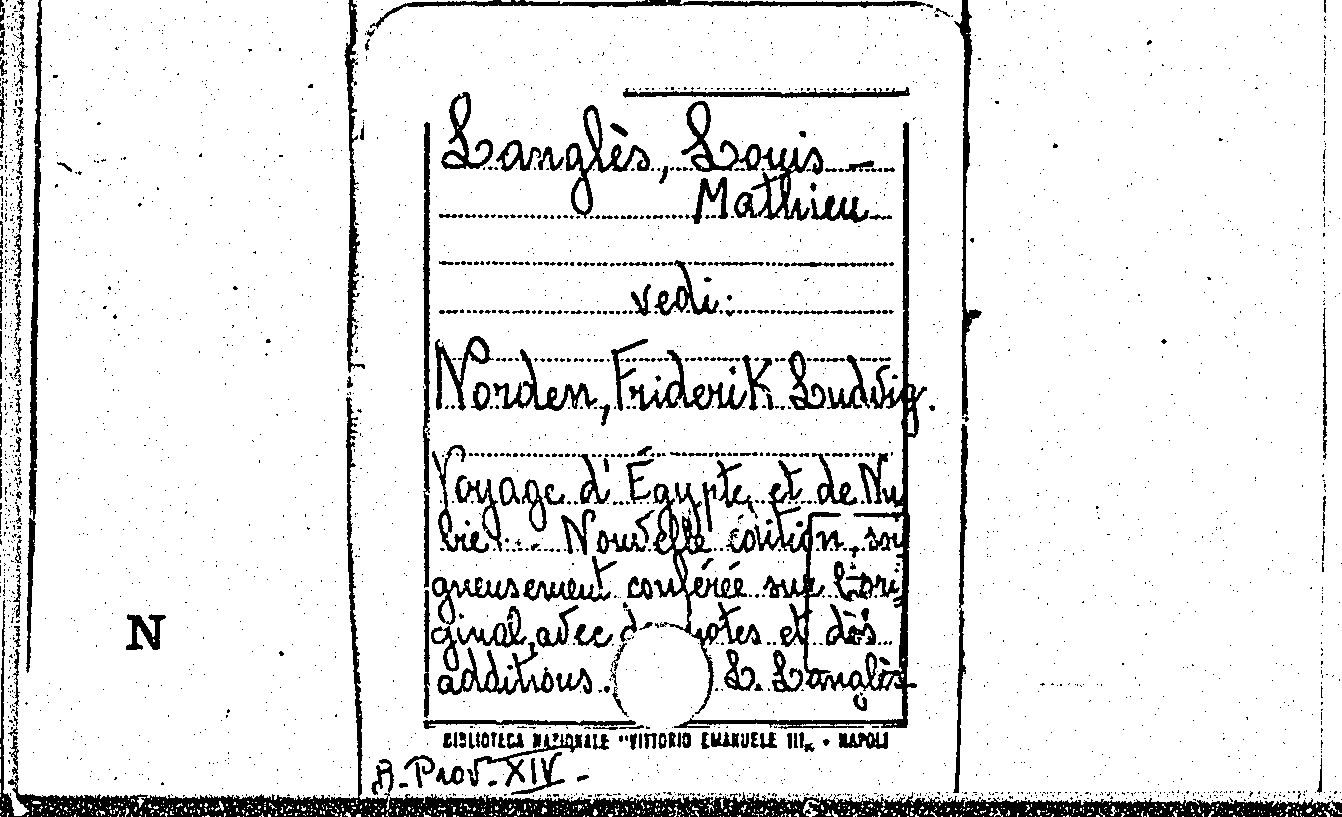 Langlès, Louis -
Mathieu
vedi:
Norden, Friderik Ludvig.
Voyage d'Égypte et de Nu
bie... Nouvelle édition, soi
gneusement conférée sur l'ori
ginal, avec notes et des
additions. L. Langlès
BIBLIOTECA NAZIONALE "VITTORIO EMANUELE III" - NAPOLI
N
Prov. XIV -